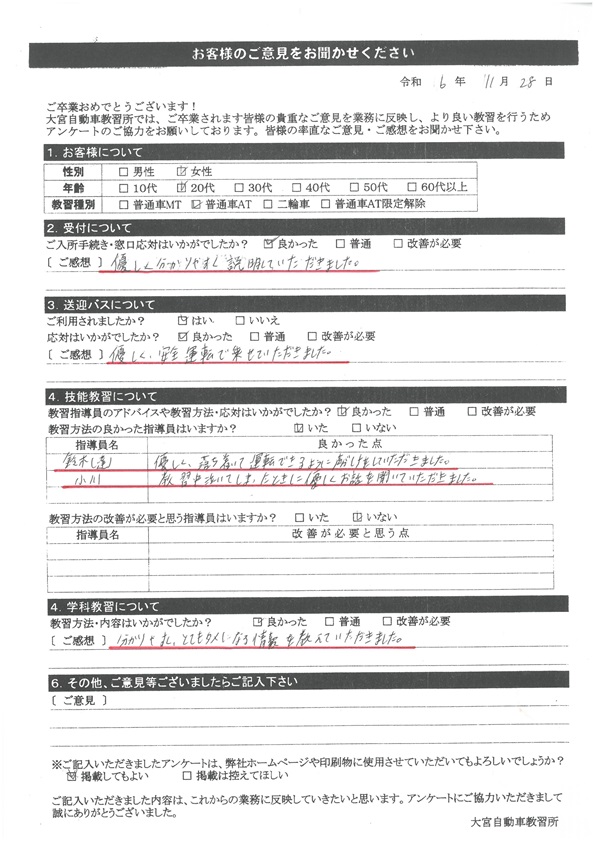 お客様のご意見をお聞かせください
令和 6 年 11 月 28 日
ご卒業おめでとうございます！
大宮自動車教習所では、ご卒業されます皆様の貴重なご意見を業務に反映し、より良い教習を行うため
アンケートのご協力をお願いしております。皆様の率直なご意見・ご感想をお聞かせ下さい。
1. お客様について
性別 □ 男性 ☑ 女性
年齢 □ 10代 ☑ 20代 □ 30代 □ 40代 □ 50代 □ 60代以上
教習種別 □ 普通車MT ☑ 普通車AT □ 二輪車 □ 普通車AT限定解除
2. 受付について
ご入所手続き・窓口応対はいかがでしたか？ ☑ 良かった □ 普通 □ 改善が必要
［ ご感想 ］ 優しく分かりやすく説明していただきました。
3. 送迎バスについて
ご利用されましたか？ ☑ はい □ いいえ
応対はいかがでしたか？ ☑ 良かった □ 普通 □ 改善が必要
［ ご感想 ］ 優しく、安全運転で乗せていただきました。
4. 技能教習について
教習指導員のアドバイスや教習方法・応対はいかがでしたか？ ☑ 良かった □ 普通 □ 改善が必要
教習方法の良かった指導員はいますか？ ☑ いた □ いない
指導員名 良かった点
鈴木 優しく、落ち着いて運転できるように声かけをしていただきました。
小川 教習中泣いてしまったときに優しくお話を聞いていただきました。
教習方法の改善が必要と思う指導員はいますか？ □ いた ☑ いない
指導員名 改善が必要と思う点
4. 学科教習について
教習方法・内容はいかがでしたか？ ☑ 良かった □ 普通 □ 改善が必要
［ ご感想 ］ 分かりやすく、とてもタメになる情報を教えていただきました。
6. その他、ご意見等ございましたらご記入下さい
［ ご意見 ］
※ご記入いただきましたアンケートは、弊社ホームページや印刷物に使用させていただいてもよろしいでしょうか？
☑ 掲載してもよい □ 掲載は控えてほしい
ご記入いただきました内容は、これからの業務に反映していきたいと思います。アンケートにご協力いただきまして
誠にありがとうございました。
大宮自動車教習所